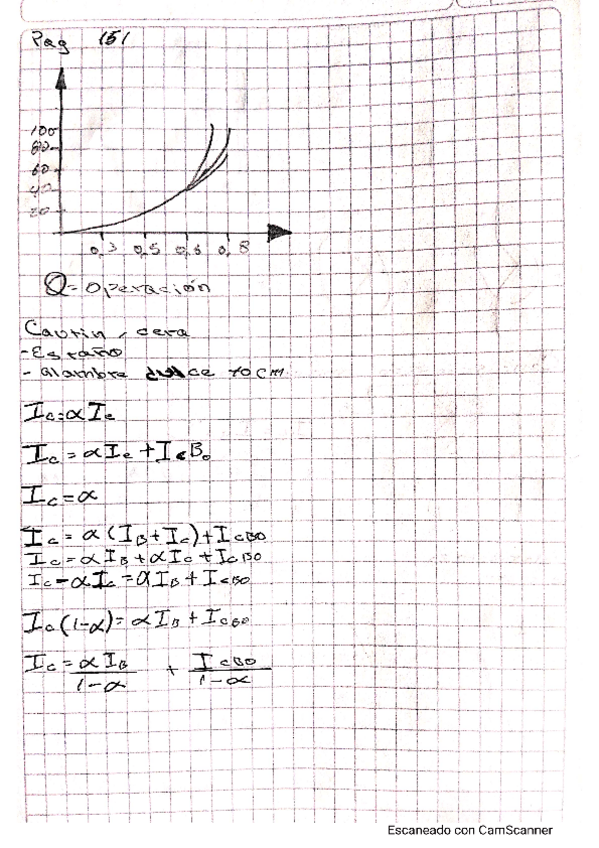 Pag 151
100
80
60
40
20
0,3 0,5 0,6 0,8
Q = Operación
Cautin, cera
- Estaño
- alambre dulce 10 cm
Ic = αIe
Ic = αIe + IcBo
Ic = α
Ic = α(IB + Ic) + ICBO
Ic = αIB + αIc + ICBO
Ic - αIc = αIB + ICBO
Ic(1-α) = αIB + ICBO
Ic = αIB / 1-α + ICBO / 1-α
Escaneado con CamScanner